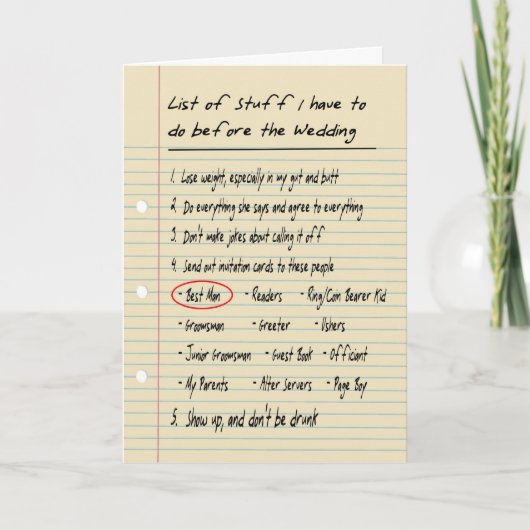 List of Stuff I have to
do before the Wedding
1. Lose weight, especially in my gut and butt
2. Do everything she says and agree to everything
3. Don't make jokes about calling it off
4. Send out invitation cards to these people
- Best Man - Readers - Ring/Coin Bearer Kid
- Groomsman - Greeter - Ushers
- Junior Groomsman - Guest Book - Officiant
- My Parents - Alter Servers - Page Boy
5. Show up, and don't be drunk